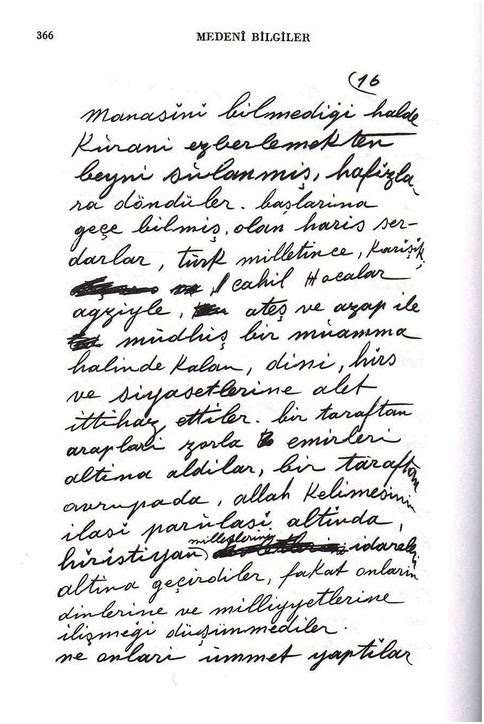 366
MEDENÎ BİLGİLER
(16
manasini bilmediği halde
Kûrani ezberlemekten
beyni sûlanmiş, hafizla
ra döndüler. başlarina
geçe bilmiş, olan haris ser-
darlar, türk milletince, Karişik,
cahil Hocalar
agziyle, ateş ve azap ile
müdhiş bir müamma
halinde Kalan, dini, hirs
ve siyasetlerine alet
ittihaz ettiler. bir taraftan
araplari zorla emirleri
altina aldilar, bir taraftan
avrupada, allah Kelimesinin
ilasi parulasi altinda,
hiristiyan milletlerini idareleri
altina geçirdiler, fakat onlarin
dinlerine ve milliyyetlerine
ilişmeği düşünmediler.
ne onlari ümmet yaptilar